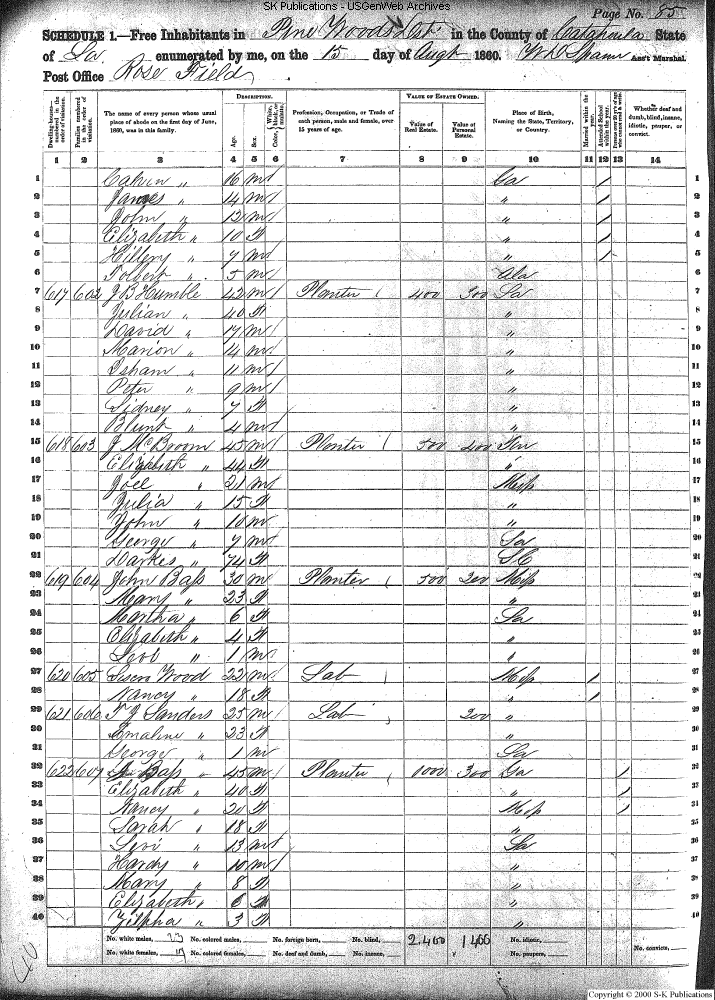 SK Publications - USGenWeb Archives
Page No. 85
SCHEDULE 1.—Free Inhabitants in Pine Woods Dist in the County of Catahoula State
of La. enumerated by me, on the 15 day of Augt 1860. W D Spann Ass't Marshal.
Post Office Rose Field
Dwelling-houses— numbered in the order of visitation.
Families numbered in the order of visitation.
The name of every person whose usual place of abode on the first day of June, 1860, was in this family.
DESCRIPTION.
Age.
Sex.
Color, White, black, or mulatto.
Profession, Occupation, or Trade of each person, male and female, over 15 years of age.
VALUE OF ESTATE OWNED.
Value of Real Estate.
Value of Personal Estate.
Place of Birth, Naming the State, Territory, or Country.
Married within the year.
Attended School within the year.
Whether deaf and dumb, blind, insane, idiotic, pauper, or convict.
1 2 3 4 5 6 7 8 9 10 11 12 13 14
1 Calvin " 16 m / Ga / 1
2 James " 14 m / " / 2
3 John " 12 m / " / 3
4 Elizabeth " 10 f " / 4
5 Hillery " 7 m " / 5
6 Tolbert " 5 m / Ala 6
7 617 602 J B Humble 42 m / Planter 400 300 La 7
8 Julian " 40 f " 8
9 David " 17 m / " 9
10 Marion " 14 m / " 10
11 Isham " 11 m / " 11
12 Peter " 9 m / " 12
13 Sidney " 7 f " 13
14 Blunt " 4 m " 14
15 618 603 J McBroom 45 m / Planter 500 400 Ten 15
16 Elizabeth " 44 f " 16
17 Joel " 21 m Misp 17
18 Julia " 15 f " 18
19 John " 10 m " 19
20 George " 7 m La 20
21 Darkes " 74 f SC 21
22 619 604 John Bass 30 m Planter 500 200 Misp 22
23 Mary " 23 f " 23
24 Martha " 6 f La 24
25 Elizabeth " 4 f " 25
26 " 1 m " 26
27 620 605 Wood 22 m / Lab Misp / 27
28 Nancy " 18 f " / 28
29 621 606 T J Sanders 25 m / Lab 200 " 29
30 Emaline " 23 f " 30
31 George " 1 m La 31
32 622 607 Bass " 45 m / Planter 1000 300 Ga / 32
33 Elizabeth " 40 f " / 33
34 Nancy " 20 f Misp / 34
35 Sarah " 18 f " 35
36 Levi " 13 m La 36
37 Hardy " 10 m / " 37
38 Mary " 8 f " 38
39 Elizabeth " 6 f " 39
40 Zilpha " 3 f " 40
No. white males, 23 No. colored males, No. foreign born, No. blind, 2.400 1400 No. idiotic, No. convicts,
No. white females, 17 No. colored females, No. deaf and dumb, No. insane, No. paupers,
Copyright © 2000 S-K Publications